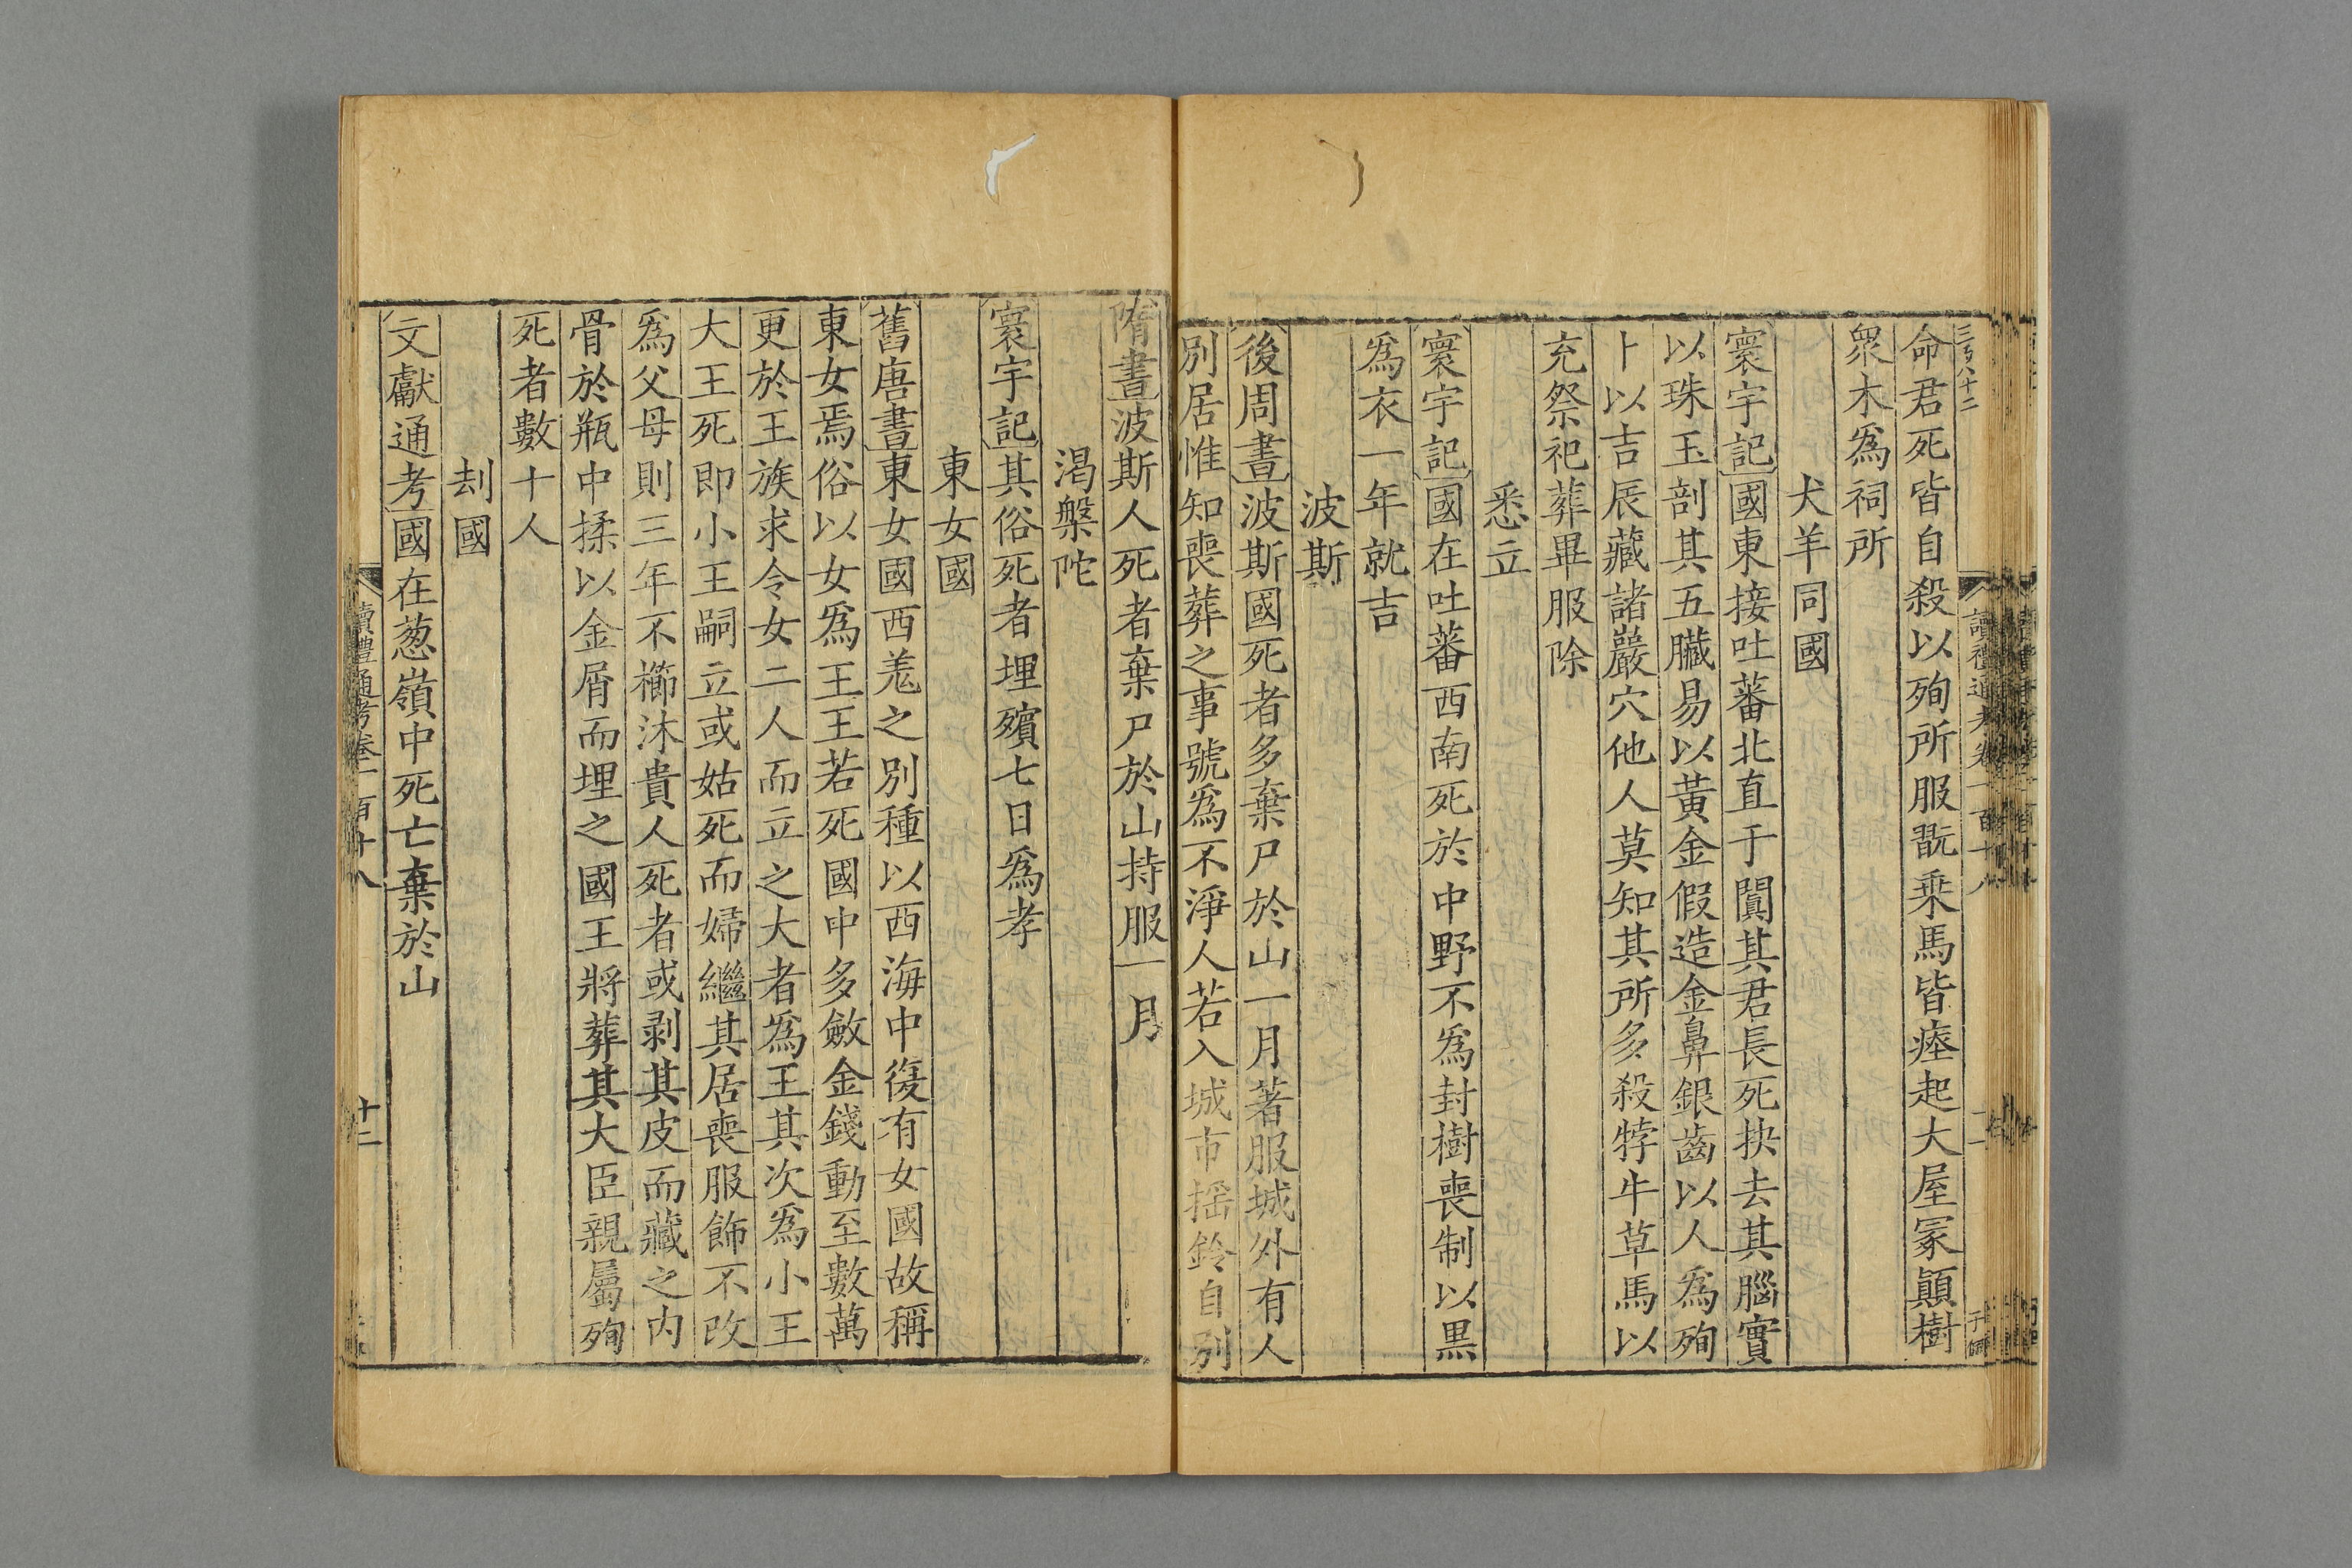 三百八十二
讀禮通考卷一百十八
命君死皆自殺以殉所服翫乘馬皆瘞起大屋冢顛樹
衆木爲祠所
犬羊同國
寰宇記國東接吐蕃北直于闐其君長死抉去其腦實
以珠玉剖其五臟易以黃金假造金鼻銀齒以人爲殉
卜以吉辰藏諸巖穴他人莫知其所多殺牸牛草馬以
充祭祀葬畢服除
悉立
寰宇記國在吐蕃西南死於中野不爲封樹喪制以黒
爲衣一年就吉
波斯
後周書波斯國死者多棄尸於山一月著服城外有人
別居惟知喪葬之事號爲不淨人若入城市揺鈴自別
隋書波斯人死者棄尸於山持服一月
渴槃陀
寰宇記其俗死者埋殯七日爲孝
東女國
舊唐書東女國西羗之別種以西海中復有女國故稱
東女焉俗以女爲王王若死國中多斂金錢動至數萬
更於王族求令女二人而立之大者爲王其次爲小王
大王死即小王嗣立或姑死而婦繼其居喪服飾不改
爲父母則三年不櫛沐貴人死者或剥其皮而藏之内
骨於瓶中揉以金屑而埋之國王將葬其大臣親屬殉
死者數十人
刦國
文獻通考國在葱嶺中死亡棄於山
讀禮通考卷一百十八
十二